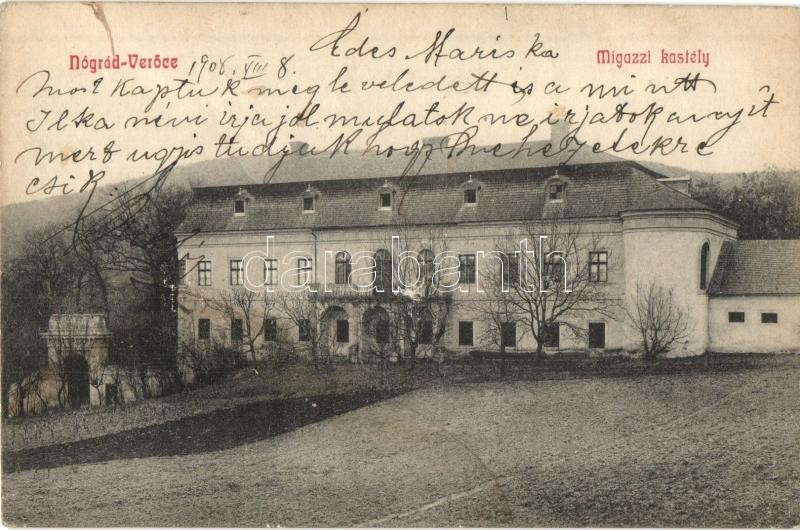 Nógrád-Verőce
1908. VIII 8.
Édes Mariska
Migazzi kastély
most kaptuk meg leveledett is a mintt
Ilka néni írja jól mulatok ne irjatok anyit
mert ugyis tudjuk hogy
csik
darabanth